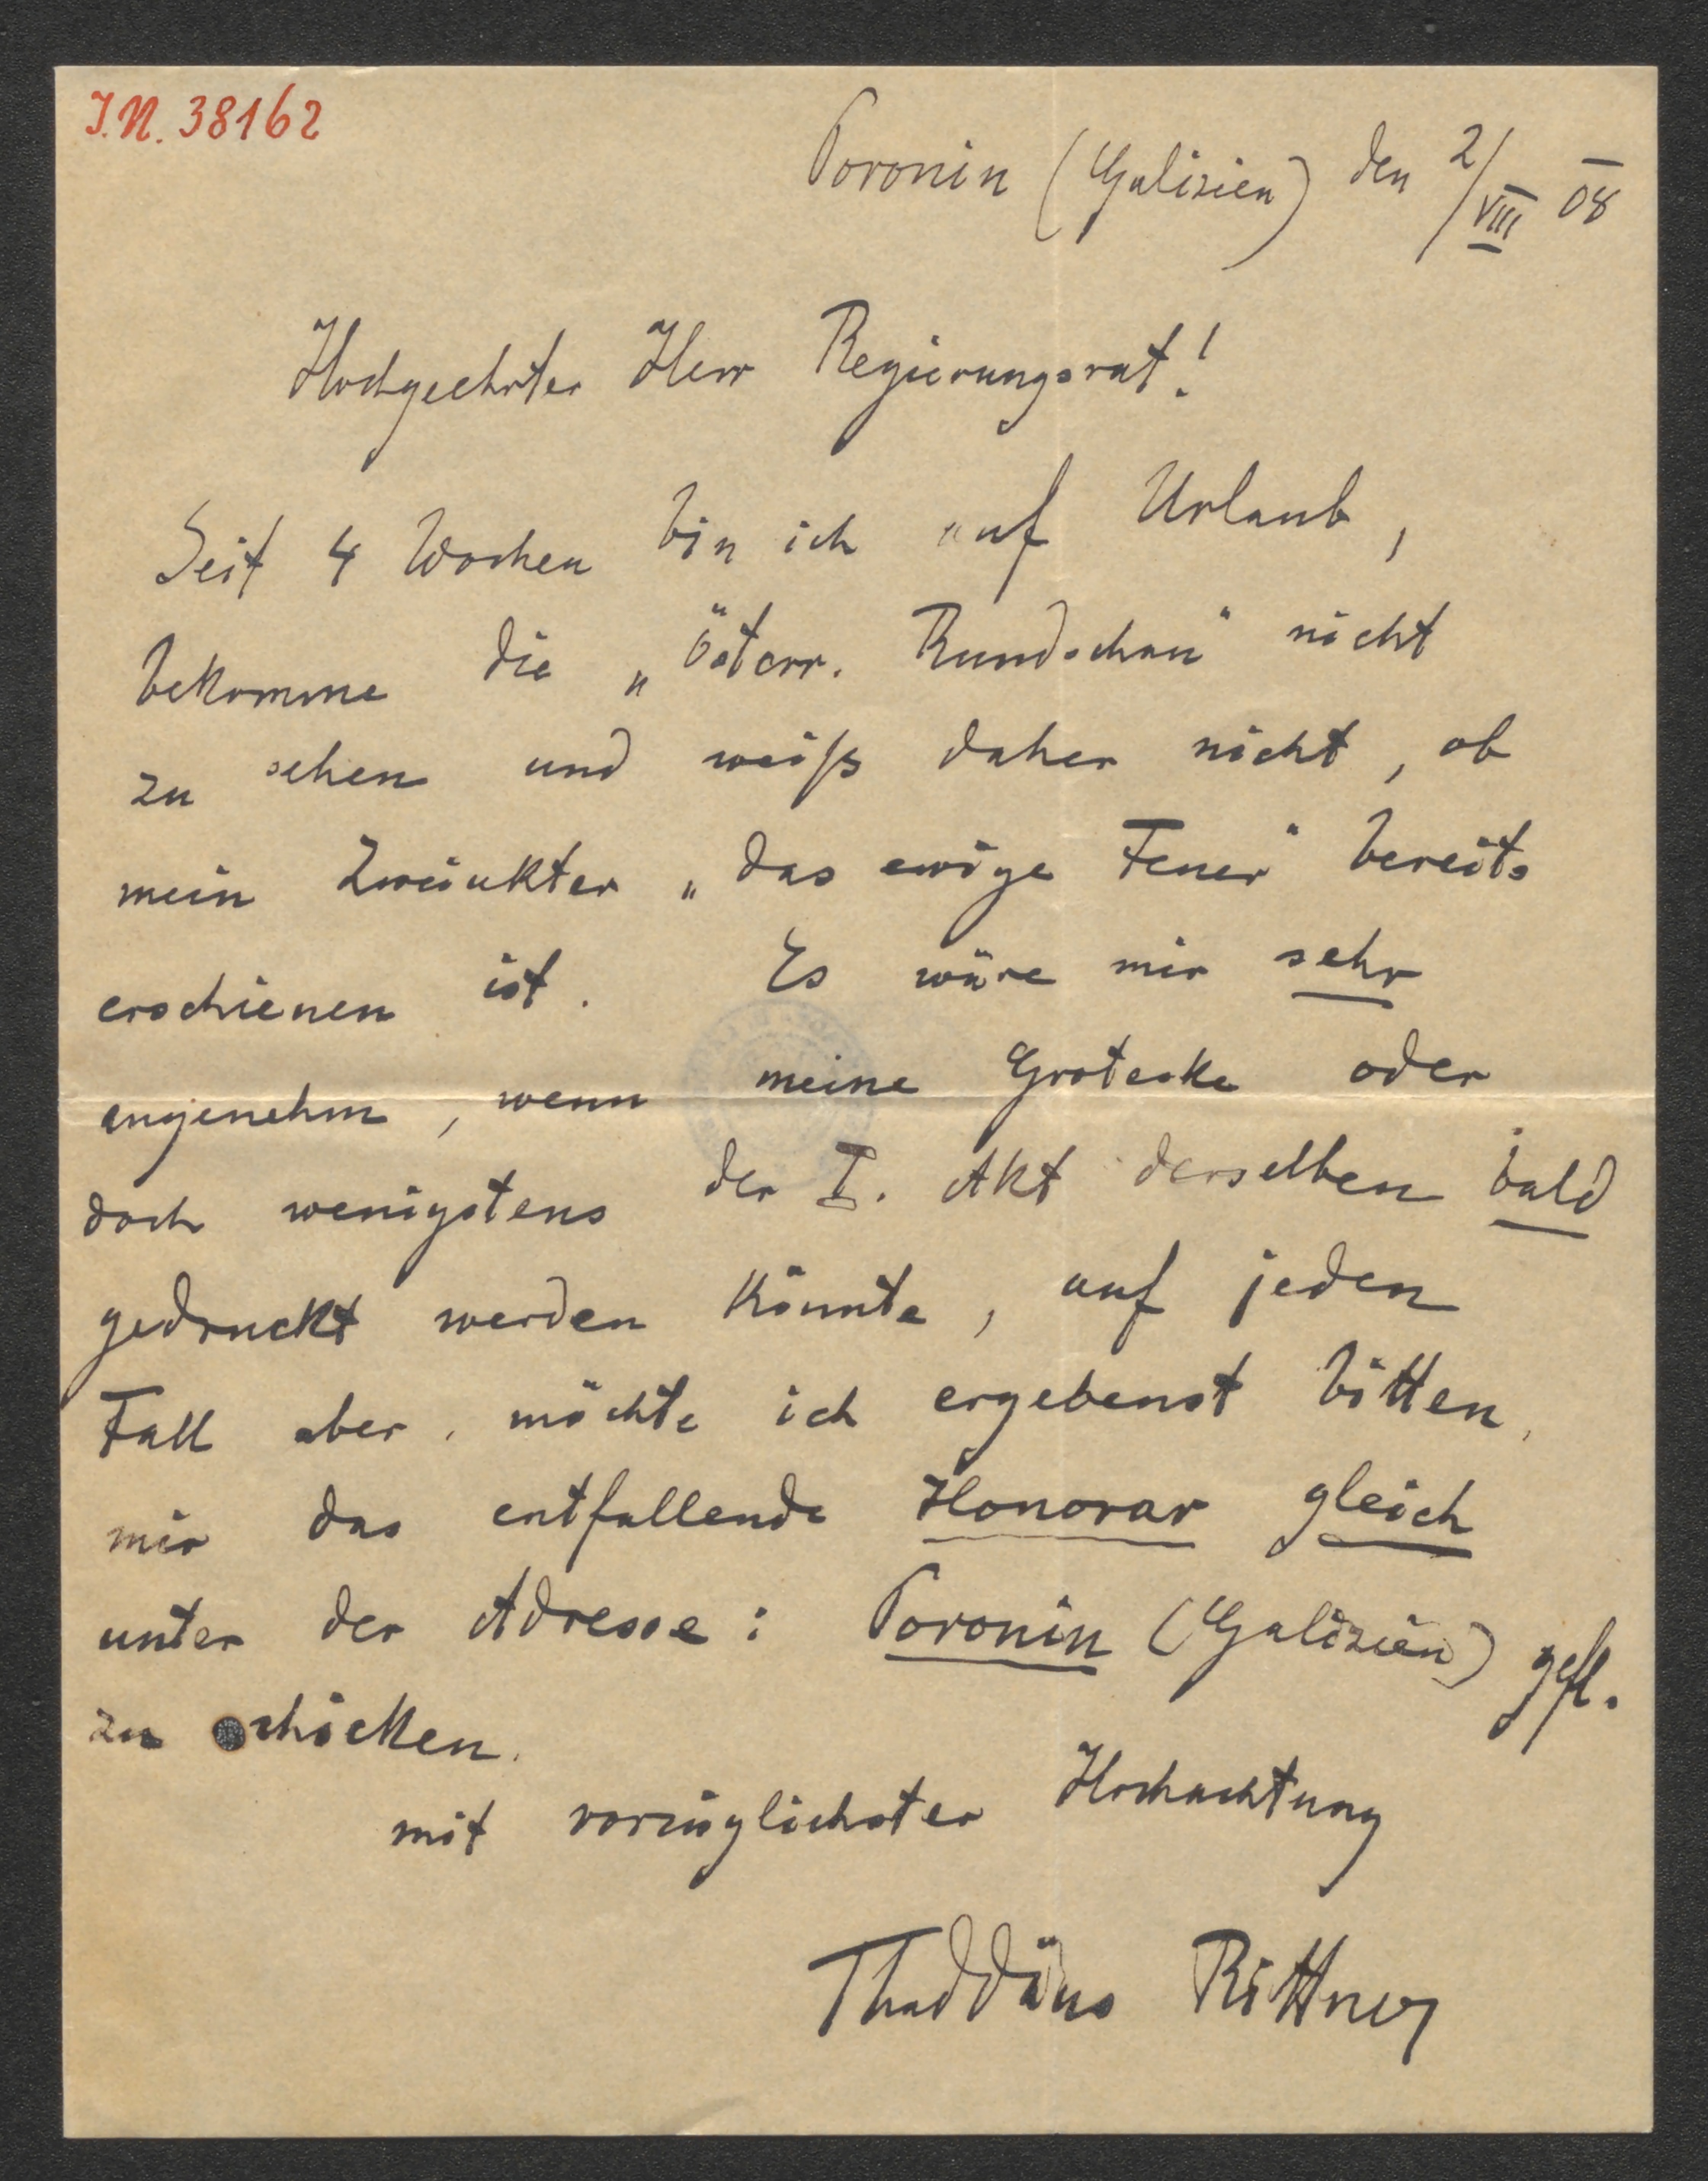 I.N. 38162
Poronin (Galizien) den 2/VIII 08
Hochgeehrter Herr Regierungsrat!
Seit 4 Wochen bin ich auf Urlaub,
bekomme die „Österr. Rundschau" nicht
zu sehen und weiß daher nicht, ob
mein Zweiakter „das ewige Feuer" bereits
erschienen ist. Es wäre mir sehr
angenehm, wenn meine Groteske oder
doch wenigstens der I. Akt derselben bald
gedruckt werden könnte, auf jeden
Fall aber, möchte ich ergebenst bitten,
mir das entfallende Honorar gleich
unter der Adresse: Poronin (Galizien) gefl.
zu schicken.
mit vorzüglichster Hochachtung
Thaddäus Rittner